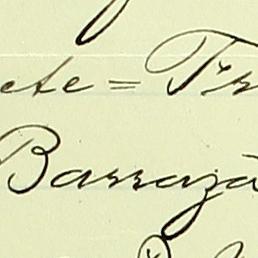 ete = Fr
Barraza